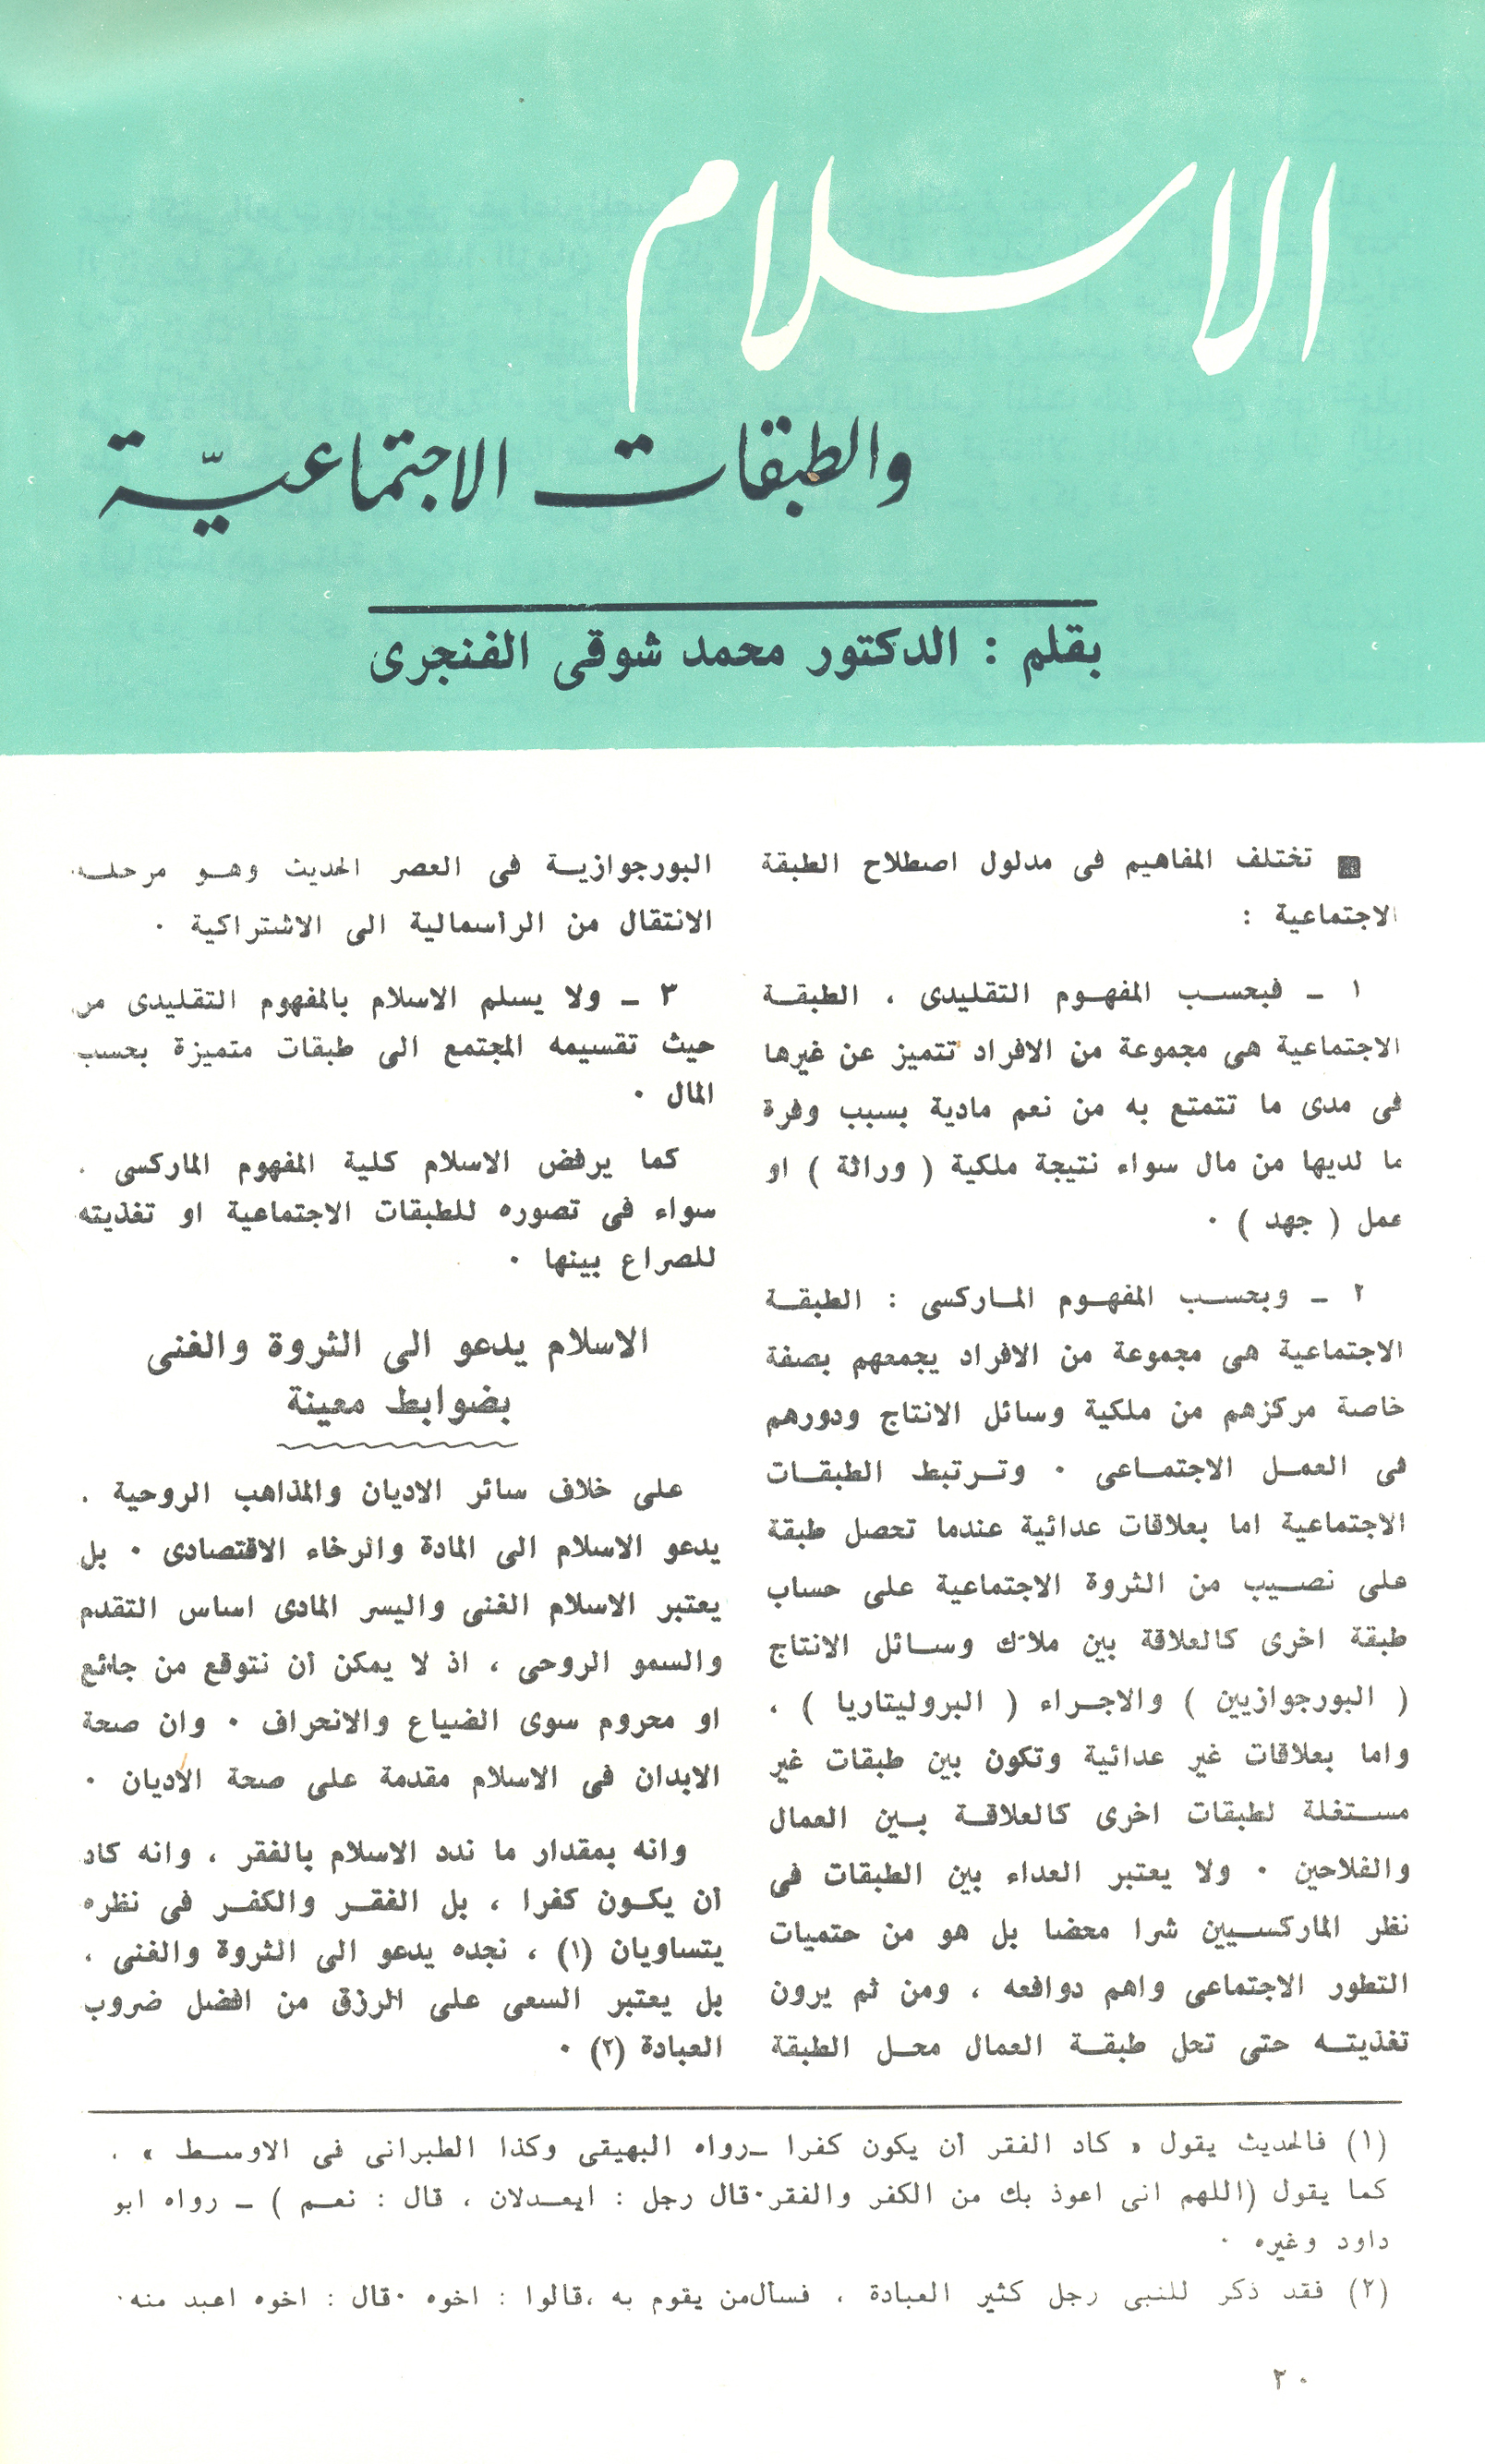 الاسلام
والطبقات الاجتماعيّة
بقلم : الدكتور محمد شوقى الفنجرى
■ تختلف المفاهيم فى مدلول اصطلاح الطبقة
الاجتماعية :
١ ـ فبحسب المفهوم التقليدى ، الطبقة
الاجتماعية هى مجموعة من الافراد تتميز عن غيرها
فى مدى ما تتمتع به من نعم مادية بسبب وفرة
ما لديها من مال سواء نتيجة ملكية ( وراثة ) او
عمل ( جهد ) ٠
٢ ـ وبحسب المفهوم الماركسى : الطبقة
الاجتماعية هى مجموعة من الافراد يجمعهم بصفة
خاصة مركزهم من ملكية وسائل الانتاج ودورهم
فى العمل الاجتماعى ٠ وترتبط الطبقات
الاجتماعية اما بعلاقات عدائية عندما تحصل طبقة
على نصيب من الثروة الاجتماعية على حساب
طبقة اخرى كالعلاقة بين ملاك وسائل الانتاج
( البورجوازيين ) والاجراء ( البروليتاريا ) ،
واما بعلاقات غير عدائية وتكون بين طبقات غير
مستغلة لطبقات اخرى كالعلاقة بين العمال
والفلاحين ٠ ولا يعتبر العداء بين الطبقات فى
نظر الماركسيين شرا محضا بل هو من حتميات
التطور الاجتماعى واهم دوافعه ، ومن ثم يرون
تغذيته حتى تحل طبقة العمال محل الطبقة
البورجوازية فى العصر الحديث وهو مرحلة
الانتقال من الرأسمالية الى الاشتراكية ٠
٣ ـ ولا يسلم الاسلام بالمفهوم التقليدى من
حيث تقسيمه المجتمع الى طبقات متميزة بحسب
المال ٠
كما يرفض الاسلام كلية المفهوم الماركسى ،
سواء فى تصوره للطبقات الاجتماعية او تغذيته
للصراع بينها ٠
الاسلام يدعو الى الثروة والغنى
بضوابط معينة
على خلاف سائر الاديان والمذاهب الروحية ،
يدعو الاسلام الى المادة والرخاء الاقتصادى ٠ بل
يعتبر الاسلام الغنى واليسر المادى اساس التقدم
والسمو الروحى ، اذ لا يمكن أن نتوقع من جائع
او محروم سوى الضياع والانحراف ٠ وان صحة
الابدان فى الاسلام مقدمة على صحة الأديان ٠
وانه بمقدار ما ندد الاسلام بالفقر ، وانه كاد
أن يكون كفرا ، بل الفقر والكفر فى نظره
يتساويان (١) ، نجده يدعو الى الثروة والغنى ،
بل يعتبر السعى على الرزق من افضل ضروب
العبادة (٢) ٠
(١) فالحديث يقول « كاد الفقر أن يكون كفرا ـرواه البهيقى وكذا الطبرانى فى الاوسط » ،
كما يقول (اللهم انى اعوذ بك من الكفر والفقر٠قال رجل : ايعدلان ، قال : نعم ) ـ رواه ابو
داود وغيره ٠
(٢) فقد ذكر للنبى رجل كثير العبادة ، فسأل من يقوم به ،قالوا : اخوه ٠قال : اخوه اعبد منه٠
٢٠